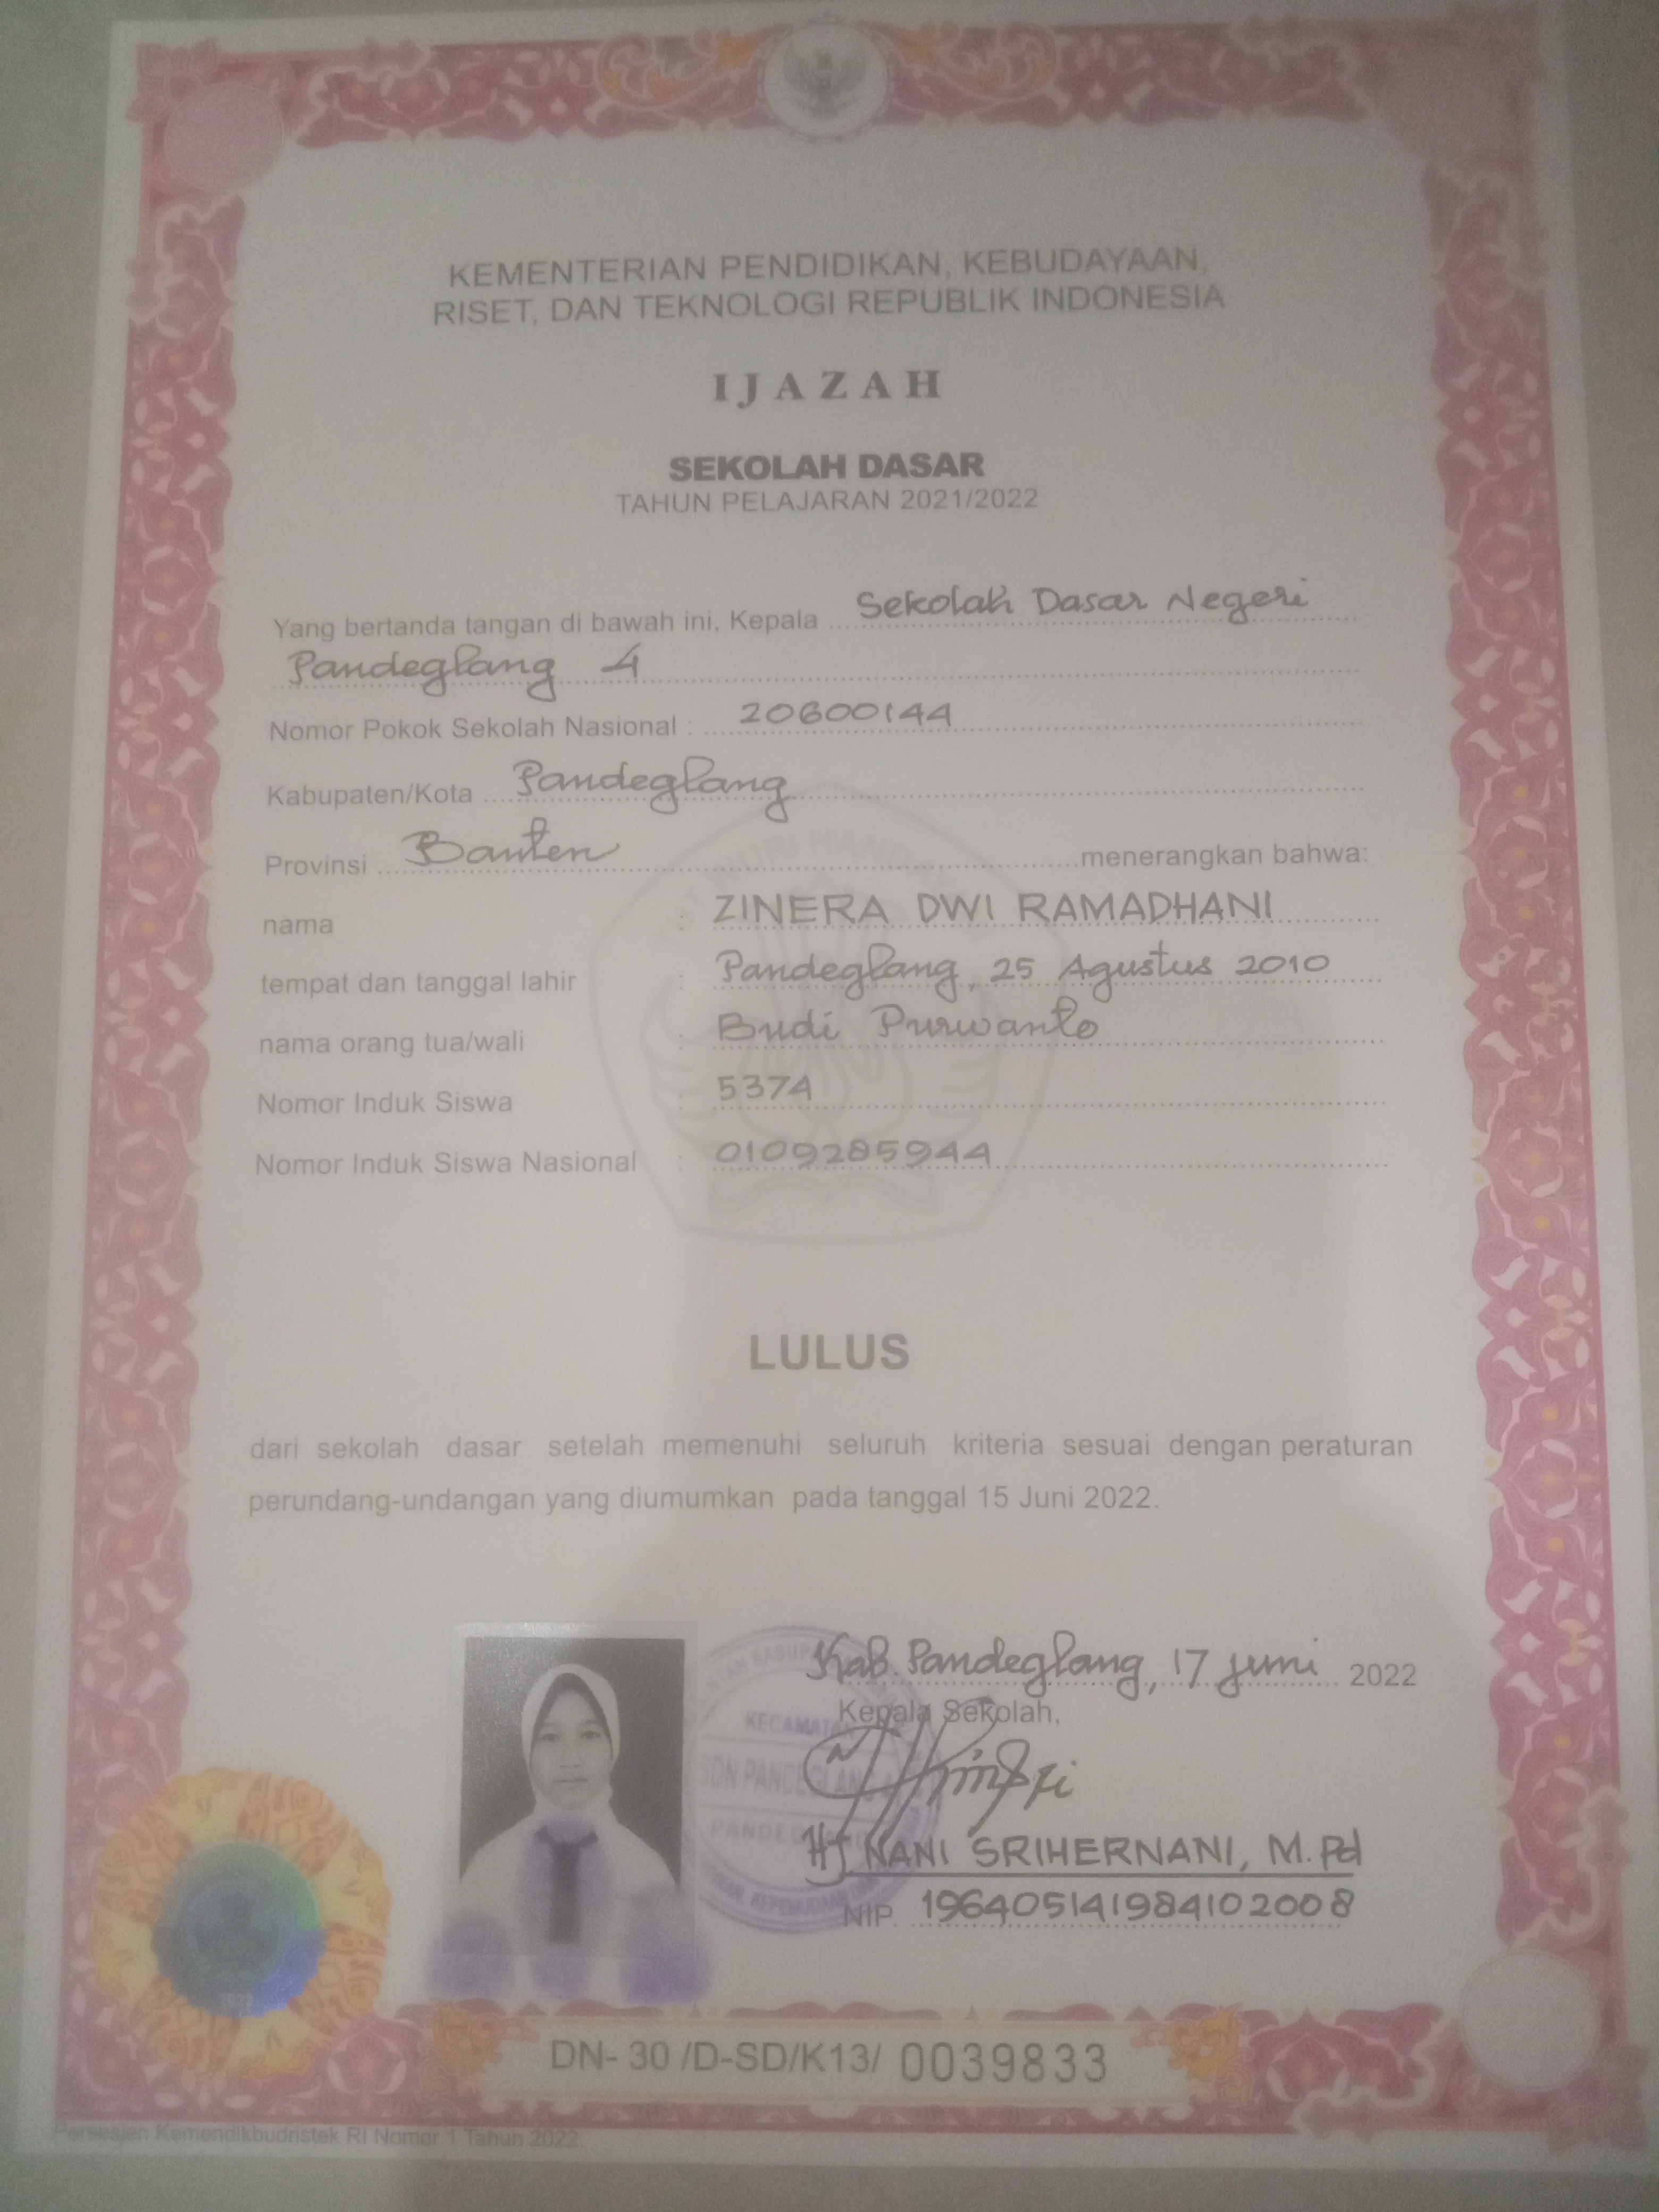 KEMENTERIAN PENDIDIKAN, KEBUDAYAAN,
RISET, DAN TEKNOLOGI REPUBLIK INDONESIA
IJAZAH
SEKOLAH DASAR
TAHUN PELAJARAN 2021/2022
Yang bertanda tangan di bawah ini, Kepala Sekolah Dasar Negeri
Pandeglang 4
Nomor Pokok Sekolah Nasional : 20600144
Kabupaten/Kota Pandeglang
Provinsi Banten menerangkan bahwa:
nama : ZINERA DWI RAMADHANI
tempat dan tanggal lahir : Pandeglang, 25 Agustus 2010
nama orang tua/wali : Budi Purwanto
Nomor Induk Siswa : 5374
Nomor Induk Siswa Nasional : 0109285944
LULUS
dari sekolah dasar setelah memenuhi seluruh kriteria sesuai dengan peraturan
perundang-undangan yang diumumkan pada tanggal 15 Juni 2022.
Kab. Pandeglang, 17 Juni 2022
Kepala Sekolah,
KECAMATAN
SDN PANDEGLANG 4
Hj NANI SRIHERNANI, M.Pd
NIP 196405141984102008
DN- 30 /D-SD/K13/ 0039833
Persesjen Kemendikbudristek RI Nomor 1 Tahun 2022